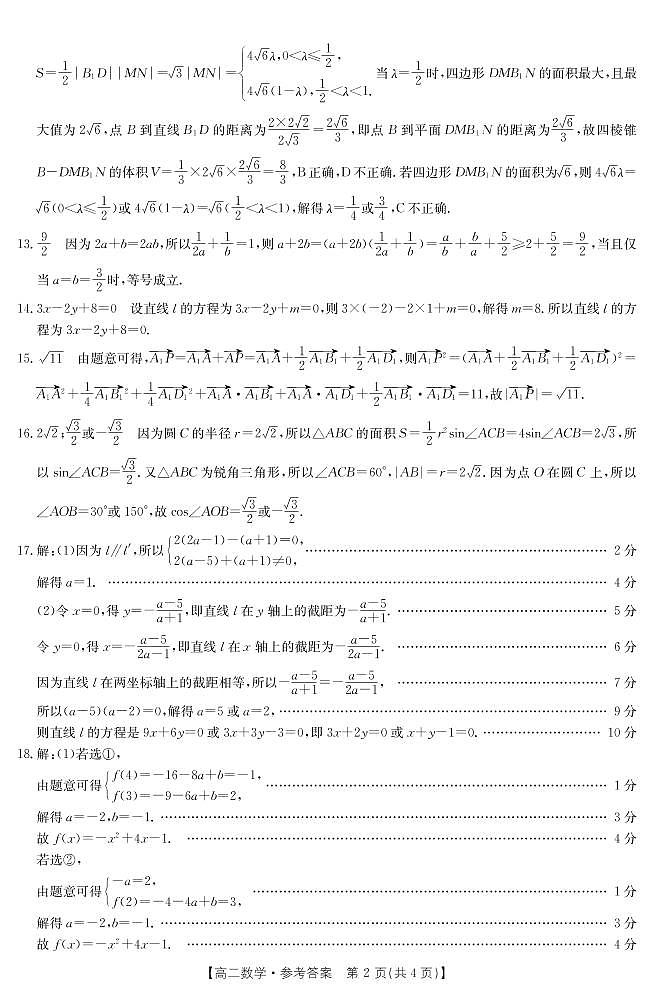 S=1/2|B₁D||MN|=√3|MN|={4√6λ,0<λ≤1/2, 4√6(1-λ),1/2<λ<1. 当λ=1/2时,四边形DMB₁N的面积最大,且最
大值为2√6,点B到直线B₁D的距离为(2×2√2)/(2√3)=2√6/3,即点B到平面DMB₁N的距离为2√6/3,故四棱锥
B-DMB₁N的体积V=1/3×2√6×2√6/3=8/3,B正确,D不正确.若四边形DMB₁N的面积为√6,则4√6λ=
√6(0<λ≤1/2)或4√6(1-λ)=√6(1/2<λ<1),解得λ=1/4或3/4,C不正确.
13. 9/2 因为2a+b=2ab,所以1/(2a)+1/b=1,则a+2b=(a+2b)(1/(2a)+1/b)=a/b+b/a+5/2≥2+5/2=9/2,当且仅
当a=b=3/2时,等号成立.
14. 3x-2y+8=0 设直线l的方程为3x-2y+m=0,则3×(-2)-2×1+m=0,解得m=8.所以直线l的方
程为3x-2y+8=0.
15. √11 由题意可得,A₁P→=A₁A→+AP→=A₁A→+1/2A₁B₁→+1/2A₁D₁→,则A₁P→²=(A₁A→+1/2A₁B₁→+1/2A₁D₁→)²=
A₁A→²+1/4A₁B₁→²+1/4A₁D₁→²+A₁A→·A₁B₁→+A₁A→·A₁D₁→+1/2A₁B₁→·A₁D₁→=11,故|A₁P→|=√11.
16. 2√2;√3/2或-√3/2 因为圆C的半径r=2√2,所以△ABC的面积S=1/2r²sin∠ACB=4sin∠ACB=2√3,所
以sin∠ACB=√3/2.又△ABC为锐角三角形,所以∠ACB=60°,|AB|=r=2√2.因为点O在圆C上,所以
∠AOB=30°或150°,故cos∠AOB=√3/2或-√3/2.
17. 解:(1)因为l∥l′,所以{2(2a-1)-(a+1)=0, 2(a-5)+(a+1)≠0, ………… 2分
解得a=1. ………… 4分
(2)令x=0,得y=-(a-5)/(a+1),即直线l在y轴上的截距为-(a-5)/(a+1). ………… 5分
令y=0,得x=-(a-5)/(2a-1),即直线l在x轴上的截距为-(a-5)/(2a-1). ………… 6分
因为直线l在两坐标轴上的截距相等,所以-(a-5)/(a+1)=-(a-5)/(2a-1), ………… 7分
所以(a-5)(a-2)=0,解得a=5或a=2, ………… 9分
则直线l的方程是9x+6y=0或3x+3y-3=0,即3x+2y=0或x+y-1=0. ………… 10分
18. 解:(1)若选①,
由题意可得{f(4)=-16-8a+b=-1, f(3)=-9-6a+b=2, ………… 1分
解得a=-2,b=-1. ………… 3分
故f(x)=-x²+4x-1. ………… 4分
若选②,
由题意可得{-a=2, f(2)=-4-4a+b=3, ………… 1分
解得a=-2,b=-1. ………… 3分
故f(x)=-x²+4x-1. ………… 4分
【高二数学·参考答案 第2页(共4页)】